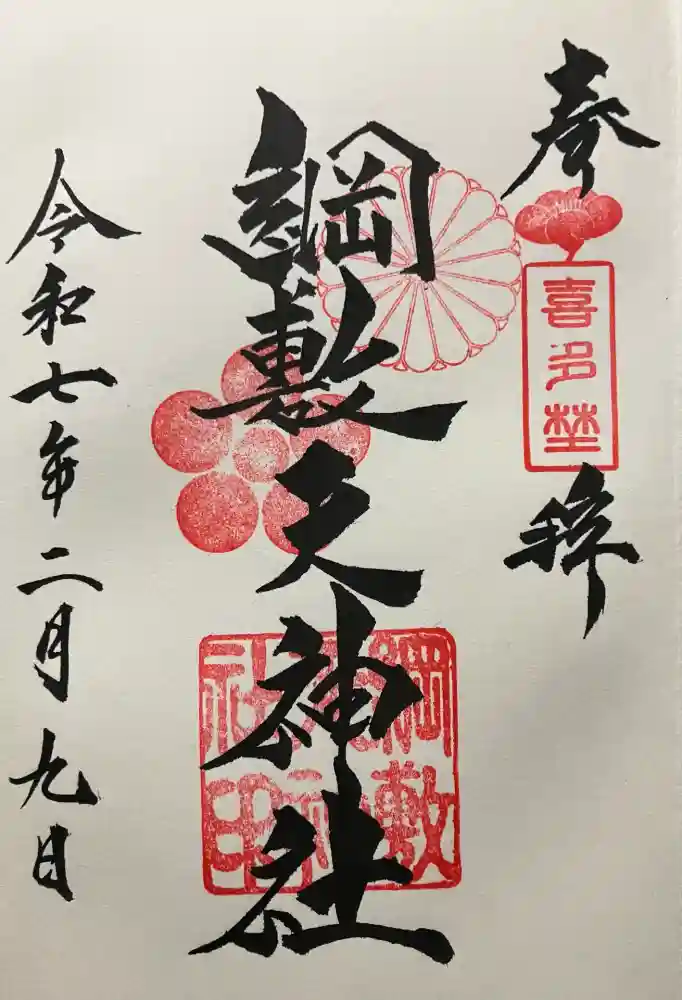 奉
喜多埜
拝
綱敷天神社
綱敷天神社印
令和七年二月九日